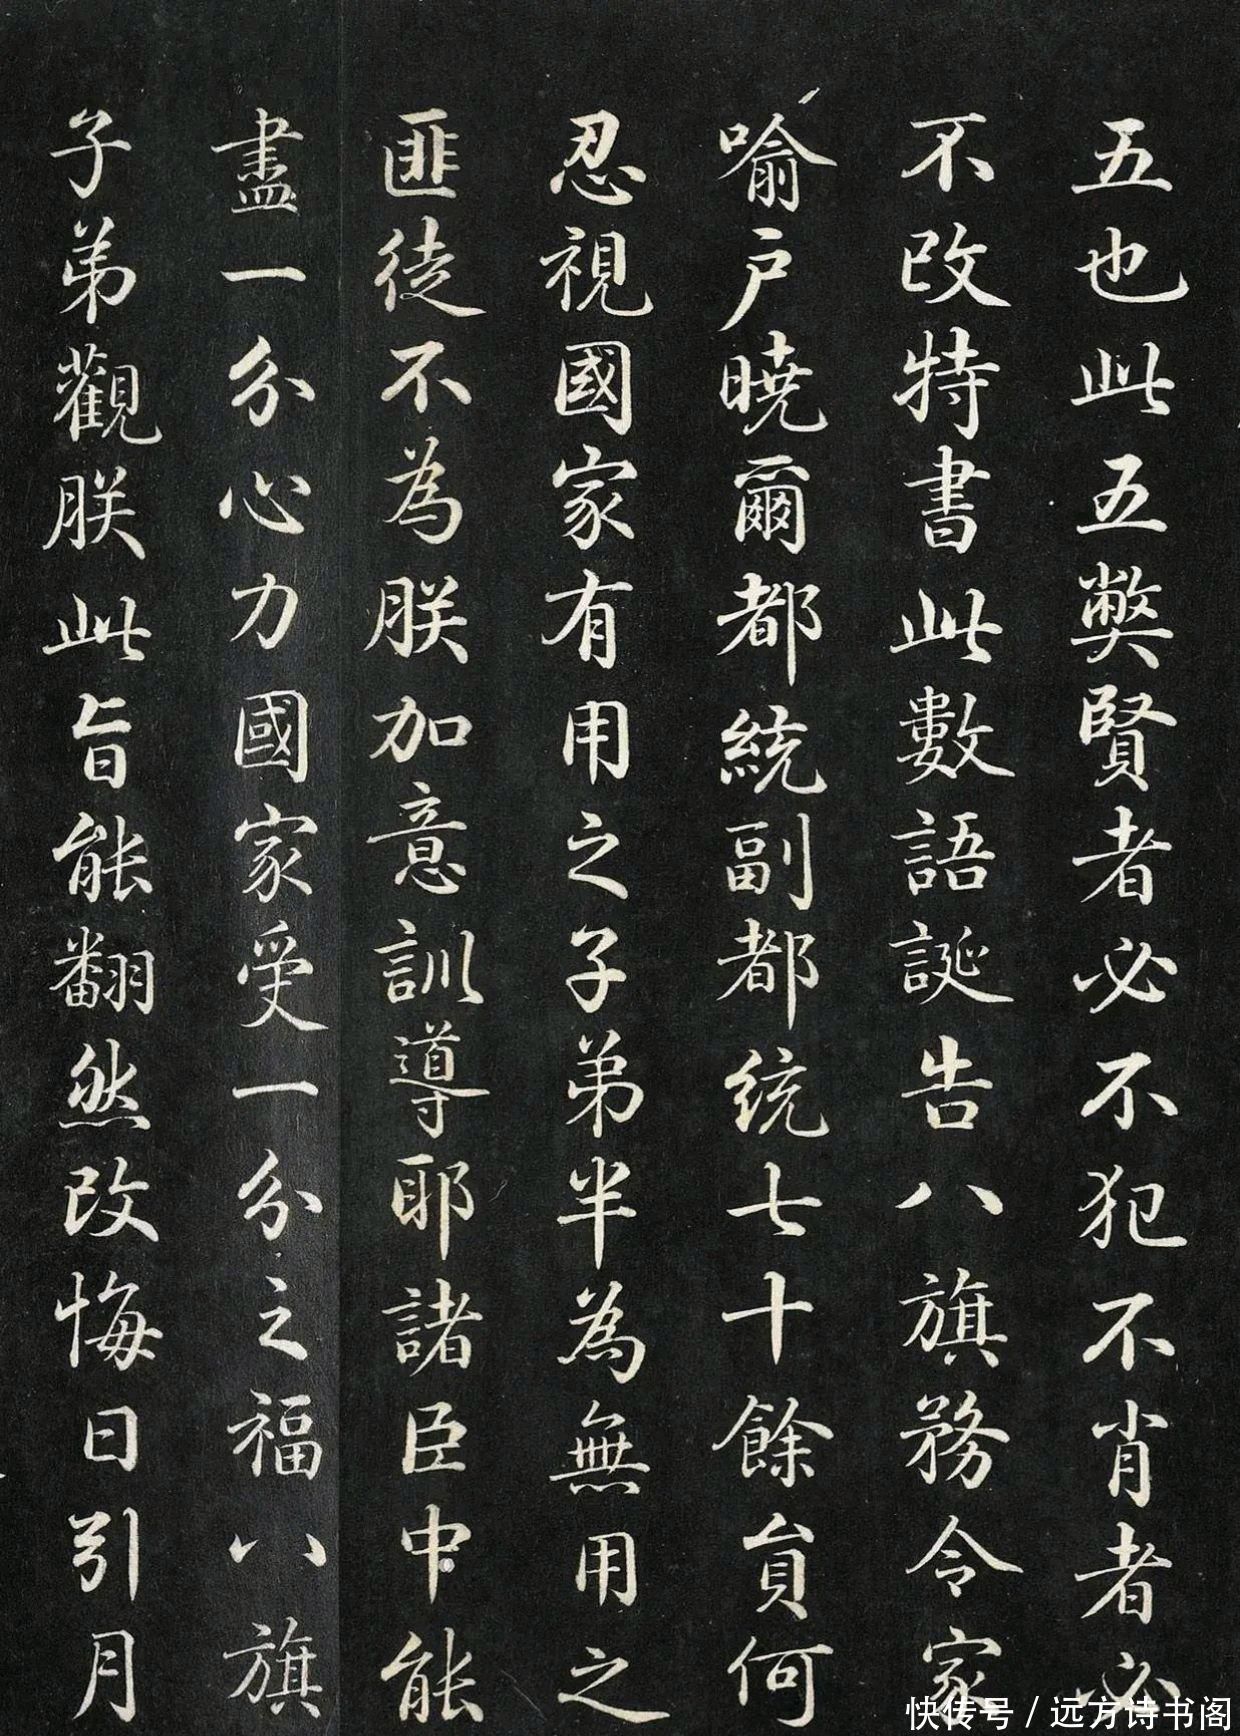 五也此五弊賢者必不犯不肖者必
不改特書此數語誕告八旗務令家
喻户曉爾都統副都统七十餘貟何
忍視國家有用之子弟半為無用之
匪徒不為朕加意訓導耶諸臣中能
盡一分心力國家受一分之福八旗
子弟觀朕此旨能翻然改悔日引月
快传号 / 远方诗书阁